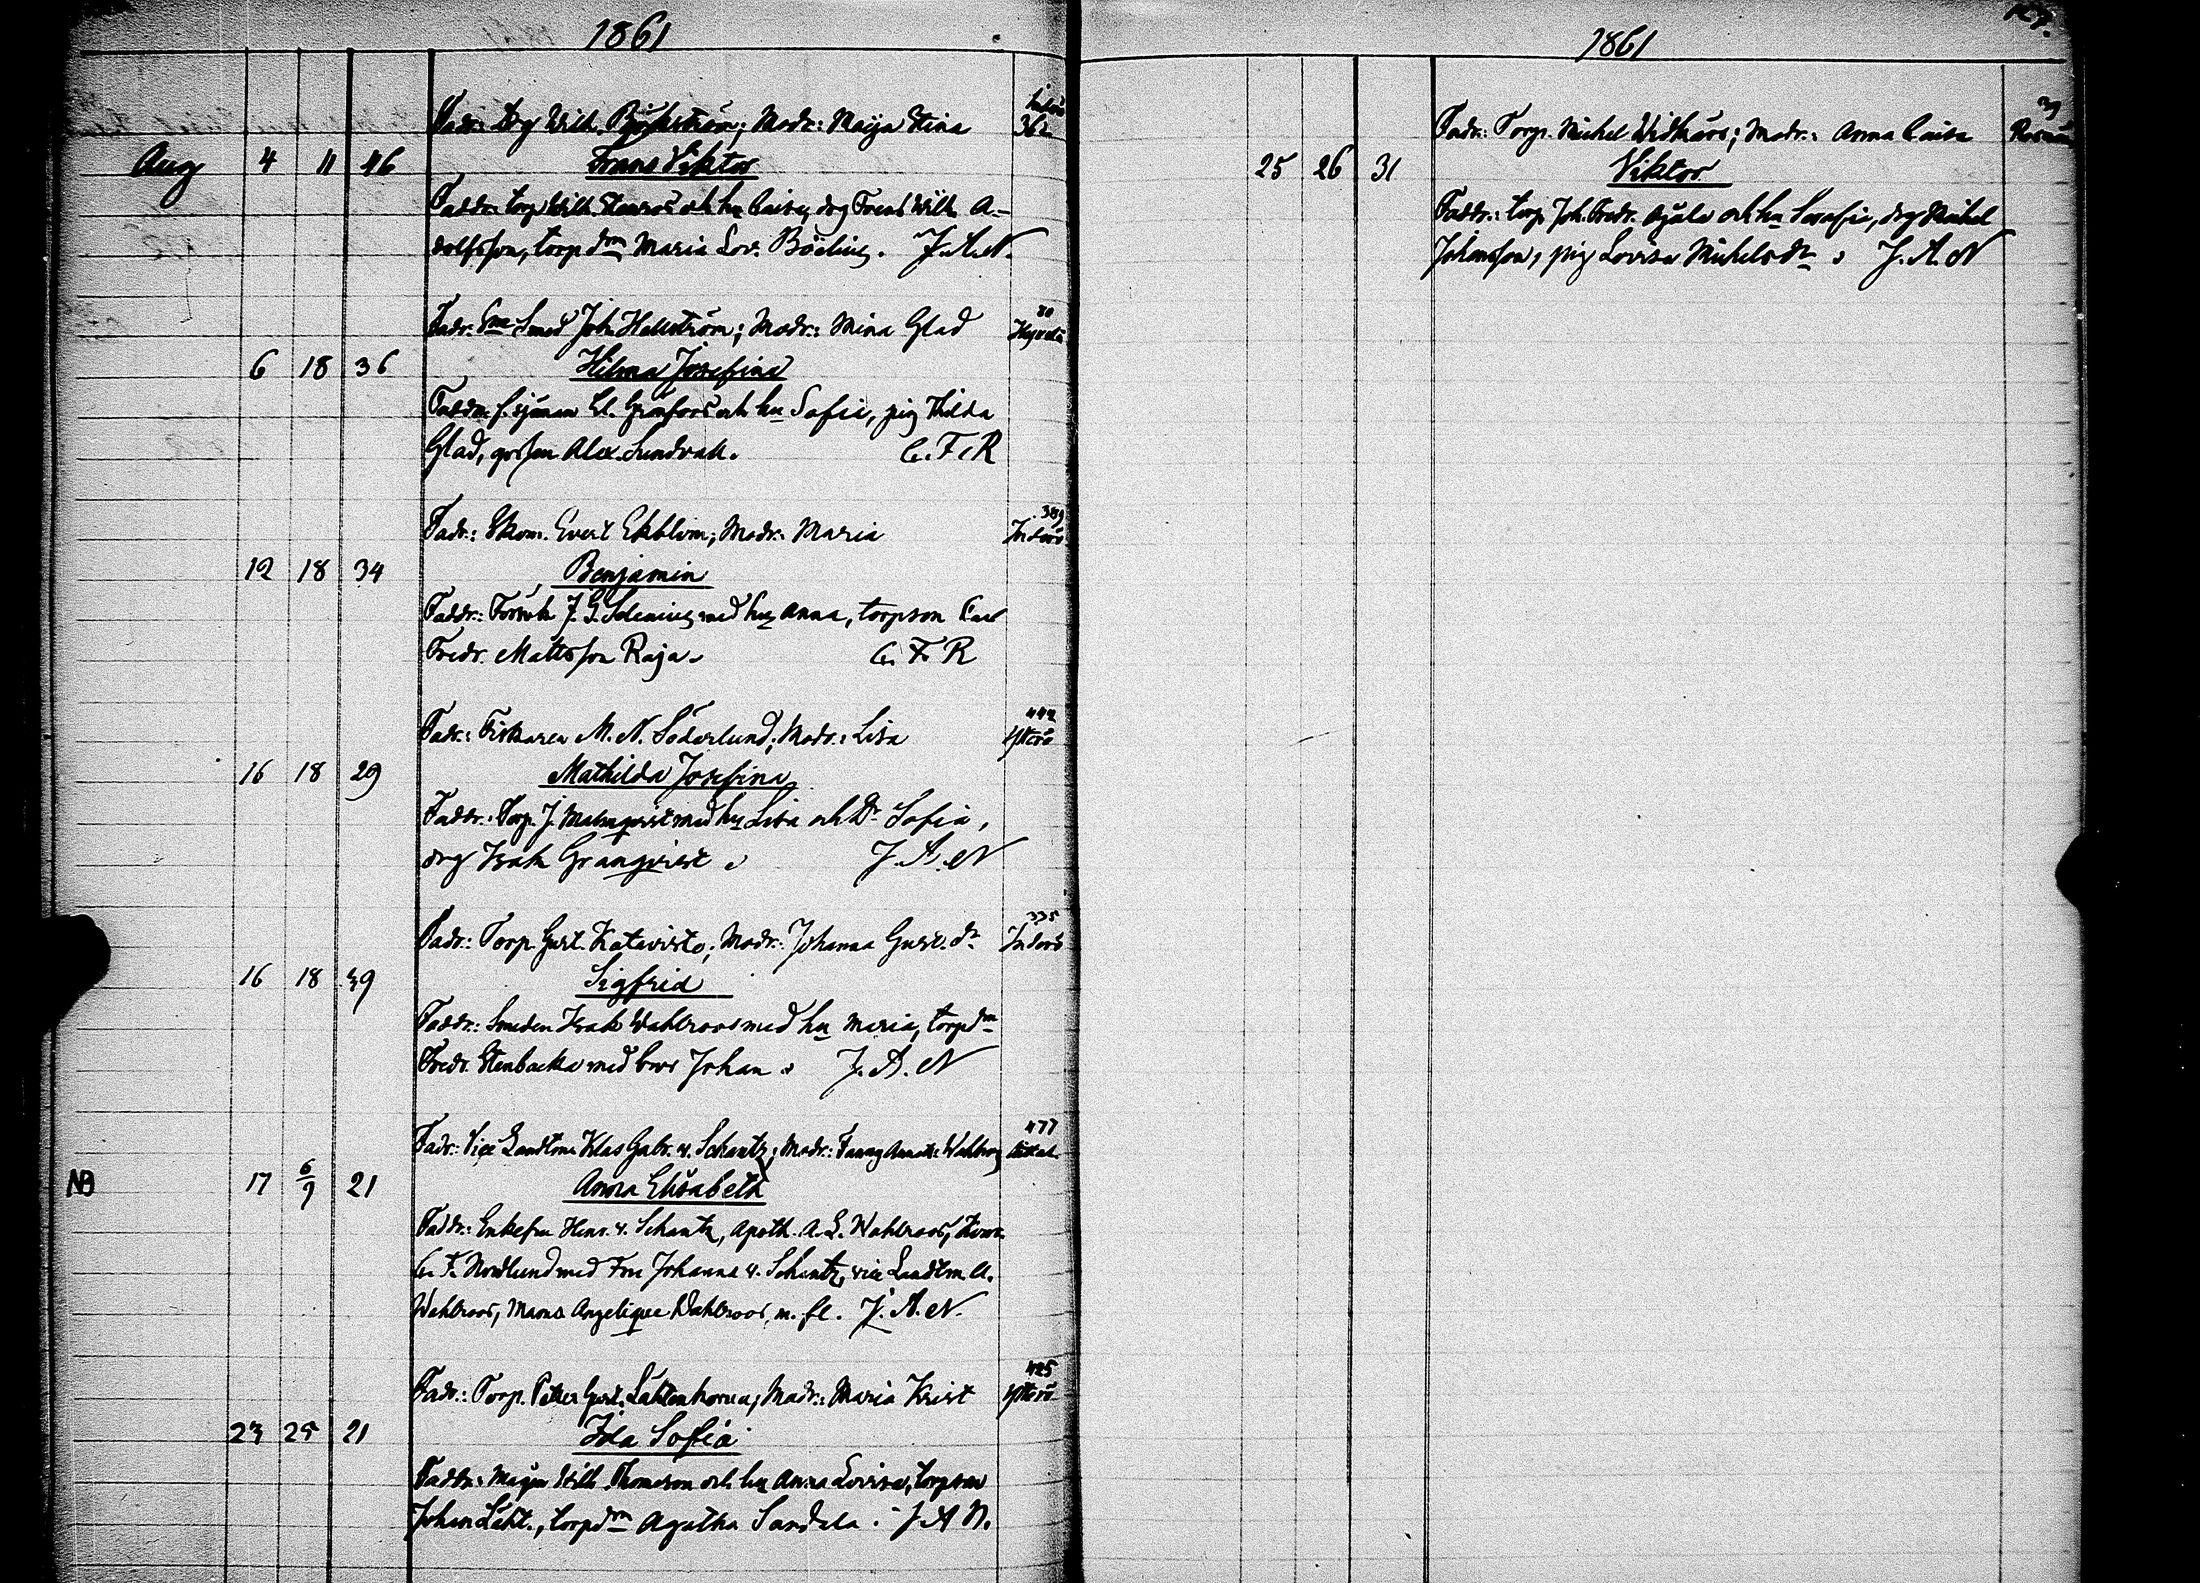 1861
Fadr: Drg Wilh. Björkström; Modr: Maja Stina
Aug 4 11 46 Frans Viktor
Faddr: torp Wilh. och hu Caisa, drg Frans Wilh. A-
dolfsson, torpdm Maria Lov. Böelius. J. A. N.
Fadr: Smed Joh. Hellström; Modr: Mina Glad 80
6 18 36 Hilma Josefina
Faddr: f. sjöman El. Granfors och hu Sofia, pig Thilda
Glad, gossen Alex. Sundvall. C. F. R
Fadr: Skom. Evert Ekblom; Modr: Maria 389 Inderö
12 18 34 Benjamin
Faddr: J. G. Idenius med hu Anna, torpson Carl
Fredr. Mattsson Raja. C. F. R
Fadr: Fiskaren M. N. Söderlund; Modr: Lisa 444 Ytterö
16 18 29 Mathilda Josefina
Faddr: Torp. J. Malmqvist med hu Lisa och Dr Sofia,
drg Isak Granqvist. J. A. N
Fadr: Torp. Gust. Katavisto; Modr: Johanna Gust. dr 335 Inderö
16 18 39 Sigfrid
Faddr: Smeden Isak Wahlroos med hu Maria, torpdm
Fredr. Stenbacka med bror Johan. J. A. N
Fadr: Vice Landtm. Klas Gabr. v. Schantz; Modr: Fanny Wahlroos 477
NB 17 6/9 21 Anna Elisabeth
Faddr: Enkefru Henr. v. Schantz, Apoth. A. L. Wahlroos,
C. F. Nordlund med Fru Johanna v. Schantz, vice Landtm. A.
Wahlroos, Mams. Angelique Wahlroos, m. fl. J. A. N.
Fadr: Torp. Petter Gust. Lähtenkorva; Modr: Maria Krist 425 Ytterö
23 25 21 Ida Sofia
Faddr: Wilh. Thomsson och hu Anna Lovisa, torpson
Johan Läht., torpdm Agatha Sandala. J A N.
1861
Fadr: Torp. Michel Widkärs; Modr: Anna Caisa 39
25 26 31 Viktor
Faddr: torp. Joh. Fredr. och hu Serafia, drg Michel
Johansson, pig Lovisa Michelsdr. J. A. N